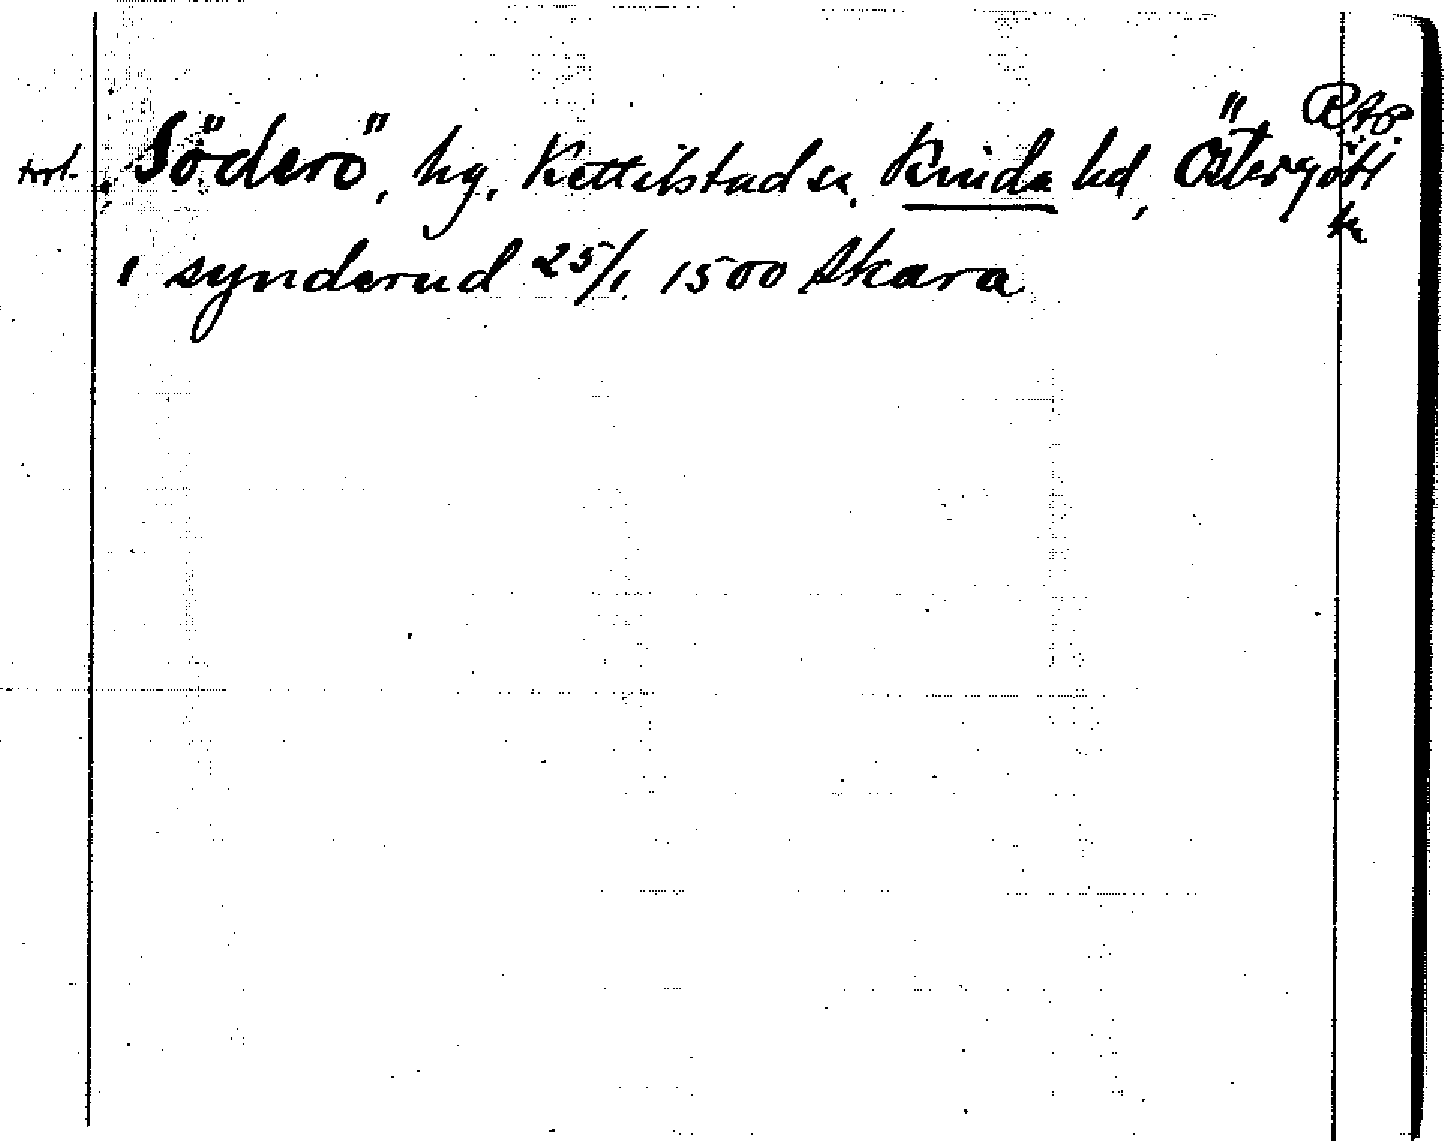 RAP.
Söderö, hg. Kettilstad sn, Kinda hd, Östergötl
ln
i synderud 25/1 1500 Skara